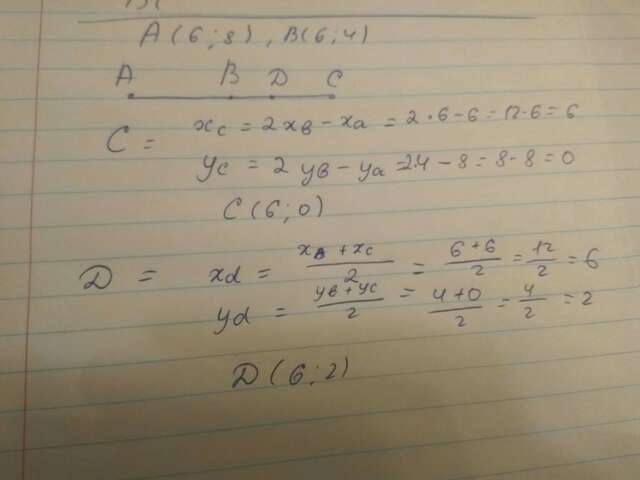 A(6;8), B(6;4)
A B D C
C = xc = 2xв - xa = 2·6-6=12-6=6
yc = 2yв - ya = 2·4 - 8 = 8-8=0
C(6;0)
D = xd = (xв + xc)/2 = (6+6)/2 = 12/2 = 6
yd = (yв + yc)/2 = (4+0)/2 = 4/2 = 2
D(6;2)